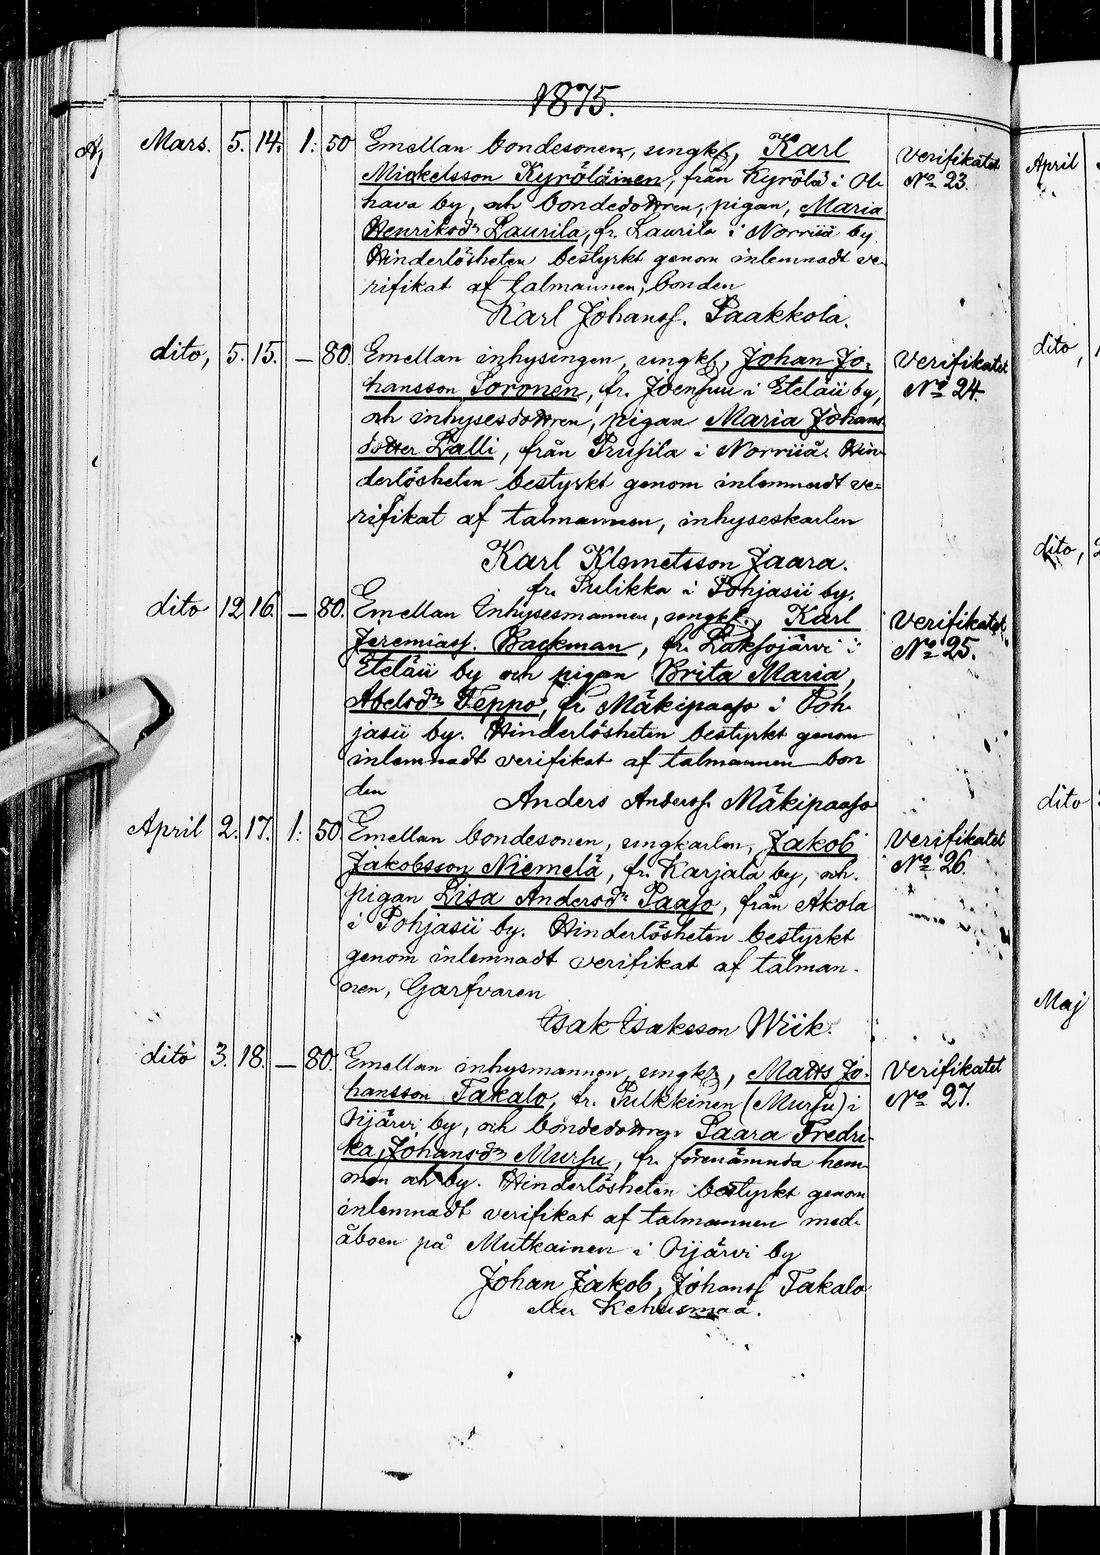 1875.
Mars. 5. 14. 1: 50 Emellan bondesonen, ungk., Karl Verifikatet
Mickelsson Kyröläinen, från Kyrölä i Ol- No 23.
hava by, och bondedottren, pigan, Maria
Henriksdr Laurila, fr. Laurila i Norriiä by.
Hinderlösheten bestyrkt genom inlemnadt ve-
rifikat af talmannen, bonden
Karl Johanss. Paakkola.
dito, 5. 15. — 80. Emellan inhysingen, ungk., Johan Jo- Verifikatet
hansson Soronen, fr. Joensuu i Eteläii by, No 24.
och inhysesdottren, pigan Maria Johans
dotter Lalli, från Prusila i Norriiä. Hin-
derlösheten bestyrkt genom inlemnadt ve-
rifikat af talmannen, inhyseskarlen
Karl Klemetsson Jaara.
fr. Sulikka i Pohjasii by.
dito 12. 16. — 80. Emellan Inhysesmannen, ungk., Karl Verifikatet
Jeremiass. Backman, fr. Laksojärvi i No 25.
Eteläii by och pigan Brita Maria,
Abelsdr Teppo, fr. Mäkipaaso i Poh-
jasii by. Hinderlösheten bestyrkt genom
inlemnadt verifikat af talmannen bon
den Anders Anderss. Mäkipaaso
April 2. 17. 1: 50. Emellan bondesonen, ungkarlen, Jakob Verifikatet
Jakobsson Niemelä, fr. Karjala by, och No 26.
pigan Lisa Andersdr Paaso, från Akola
i Pohjasii by. Hinderlösheten bestyrkt
genom inlemnadt verifikat af talman-
nen, Garfvaren
Isak Isaksson Wiik.
dito 3. 18. — 80. Emellan inhysmannen, ungk., Matts Jo- Verifikatet
hansson Takalo, fr. Pulkkinen (Mursu) i No 27.
Oijärvi by, och bondedottrn Saara Fredri-
ka, Johansdr Mursu, fr. förenämnda hem-
man och by. Hinderlösheten bestyrkt genom
inlemnadt verifikat af talmannen med-
åboen på Mutkainen i Oijärvi by
Johan Jakob, Johanss Takalo
eller Kehusmaa.
April
dito,
dito,
dito
Maj